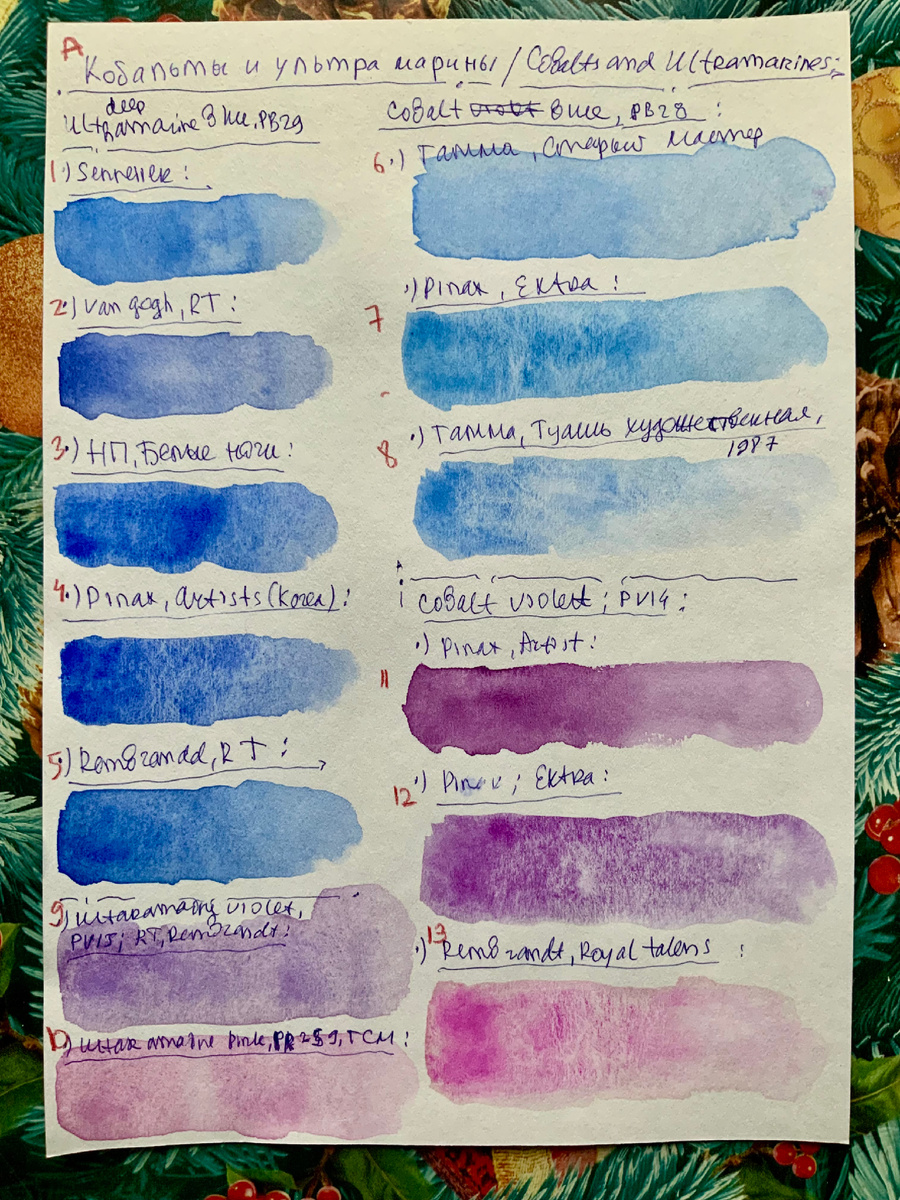 A
Кобальты и ультрамарины / Cobalts and Ultramarines:
deep
Ultramaine Blue, PB29
1.) Sennelier:
2.) Van gogh, RT:
3.) НП, Белые ночи:
4.) Pinax, Artists (Korea):
5.) Rembrandd, RT:
9) Ultaramaine violet,
PV15; RT, Rembrandt:
10) Ultaramaine pink, PR259, ГСМ:
Cobalt violet Blue, PB28:
6.) Гамма, Старый мастер
7 .) Pinax, Extra:
8 .) Гамма, Тушь художественная,
1987
Cobalt violet; PV14:
11 .) Pinax, Artist:
12 .) Pinax; Extra:
13 .) Rembrandt, Royal talens: